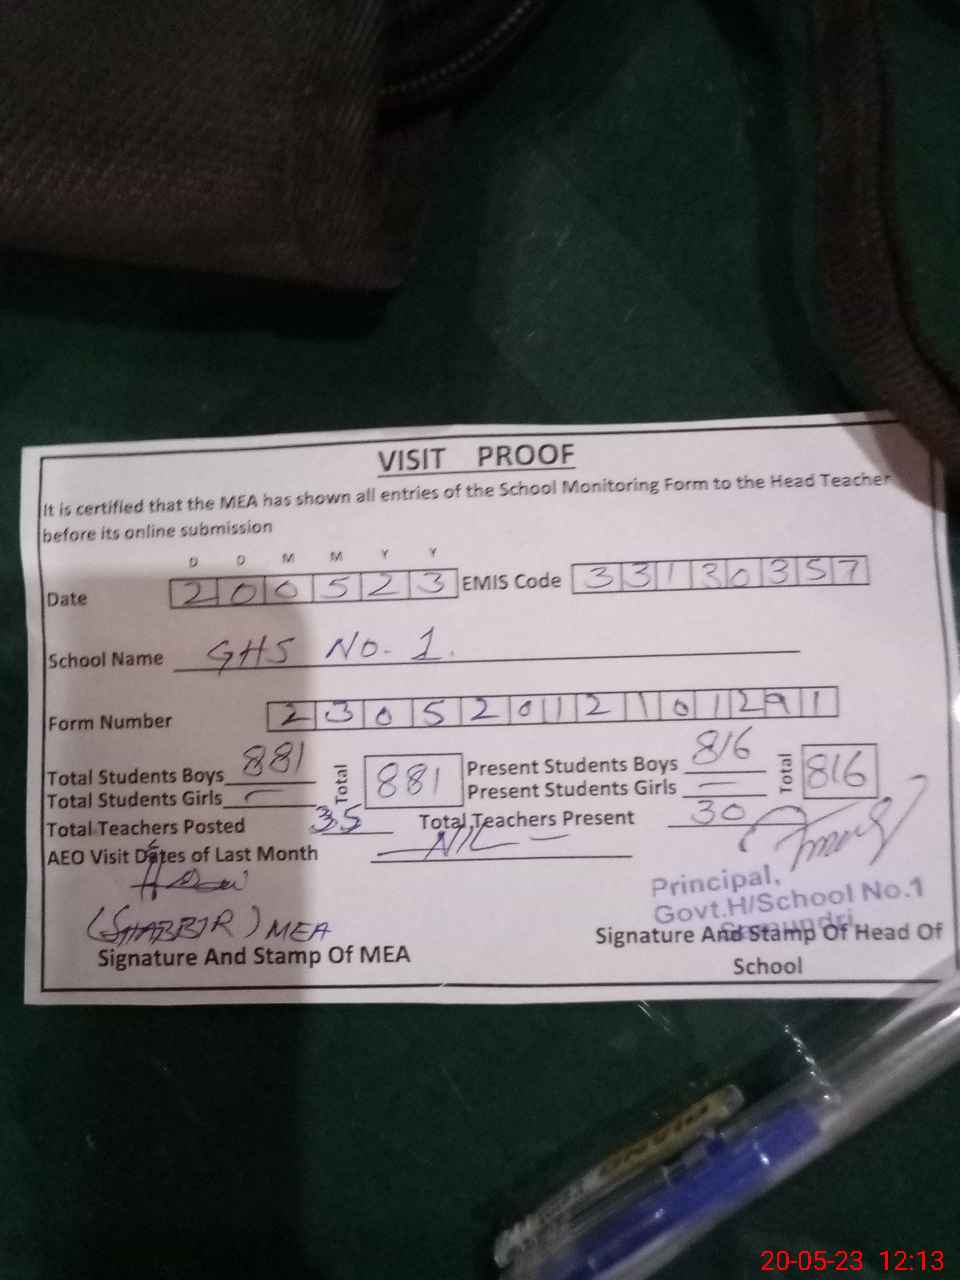 VISIT PROOF
It is certified that the MEA has shown all entries of the School Monitoring Form to the Head Teacher
before its online submission
D D M M Y Y
Date 200523 EMIS Code 33130357
School Name GHS No. 1.
Form Number 23052012101291
Total Students Boys 881 Total 881 Present Students Boys 816 Total 816
Total Students Girls — Present Students Girls —
Total Teachers Posted 35 Total Teachers Present 30
AEO Visit Dates of Last Month — NIL —
Principal,
Govt.H/School No.1
(SHABBIR) MEA
Signature And Stamp Of MEA Signature And Stamp Of Head Of
School
PIANO
20-05-23 12:13